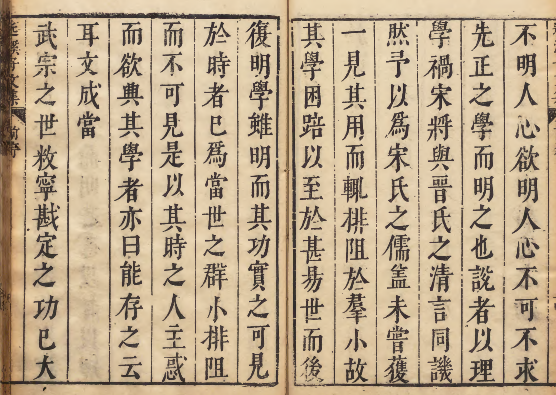 不明人心欲明人心不可不求
先正之學而明之也說者以理
學禍宋將與晉氏之清言同譏
然予以為宋氏之儒蓋未嘗獲
一見其用而輒排阻於羣小故
其學困踣以至於甚易世而後
復明學雖明而其功實之可見
於時者已為當世之群小排阻
而不可見是以其時之人主惑
而欲興其學者亦曰能存之云
耳文成當
武宗之世敉寧戡定之功已大